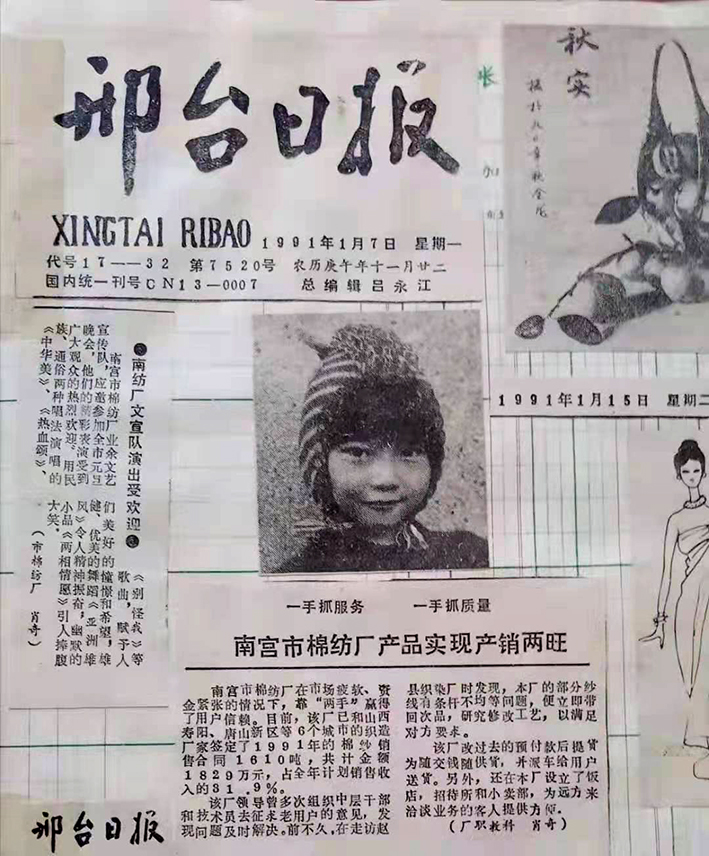 邢台日报
XINGTAI RIBAO 1991年1月7日 星期一
代号17—32 第7520号 农历庚午年十一月廿二
国内统一刊号CN13—0007 总编辑吕永江
秋实
张
●南纺厂文宣队演出受欢迎●
南宫市棉纺厂业余文艺
宣传队，应邀参加全市元旦
晚会，他们的精彩表演受到
广大观众的热烈欢迎。用民
族、通俗两种唱法演唱的
《中华美》、《热血颂》、
《别怪我》等
歌曲，赋予人
们美好的憧憬和希望，雄
健、优美的舞蹈《亚洲雄
风》令人精神振奋，幽默的
小品《两相情愿》引人捧腹
大笑。
（市棉纺厂 肖奇）
1991年1月15日 星期二
一手抓服务 一手抓质量
南宫市棉纺厂产品实现产销两旺
南宫市棉纺厂在市场疲软、资
金紧张的情况下，靠“两手”赢得
了用户信赖。目前，该厂已和山西
寿阳、唐山新区等6个城市的织造
厂家签定了1991年的棉纱销
售合同1610吨，共计金额
1829万元，占全年计划销售收
入的31.9%。
该厂领导曾多次组织中层干部
和技术员去征求老用户的意见，发
现问题及时解决。前不久，在走访赵
县织染厂时发现，本厂的部分纱
线有条杆不均等问题，便立即带
回次品，研究修改工艺，以满足
对方要求。
该厂改过去的预付款后提货
为随交钱随供货，并派车给用户
送货。另外，还在本厂设立了饭
店，招待所和小卖部，为远方来
洽谈业务的客人提供方便。
（厂职教科 肖奇）
邢台日报